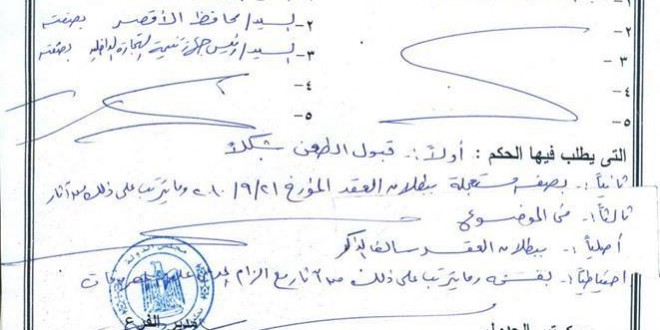 ١-
٢- السيد/ محافظ الأقصر بصفته
٢-
٣- السيد/ رئيس جهاز تنمية التجارة الداخلية بصفته
٣-
٤-
٤-
٥-
٥-
التى يطلب فيها الحكم : أولاً :- قبول الطعن شكلاً
ثانياً :- بصفة مستعجلة ببطلان العقد المؤرخ ٢٠١٠/٩/٢١ وما يترتب على ذلك من آثار
ثالثاً :- فى الموضوع
أصلياً :- ببطلان العقد سالف الذكر
احتياطياً :- بفسخه وما يترتب على ذلك من آثار مع الزام
مجلس الدولة
مدير الفرع